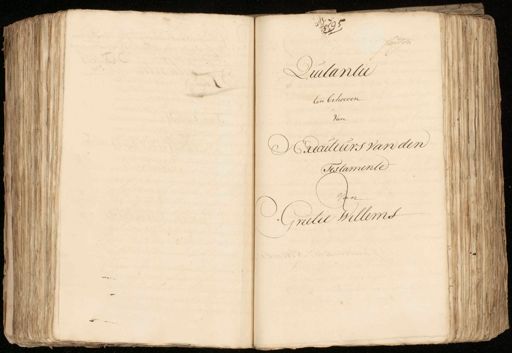 Quitantie
ten behoeven
van
Executeurs van den
Testamente
van
Grietie Willems